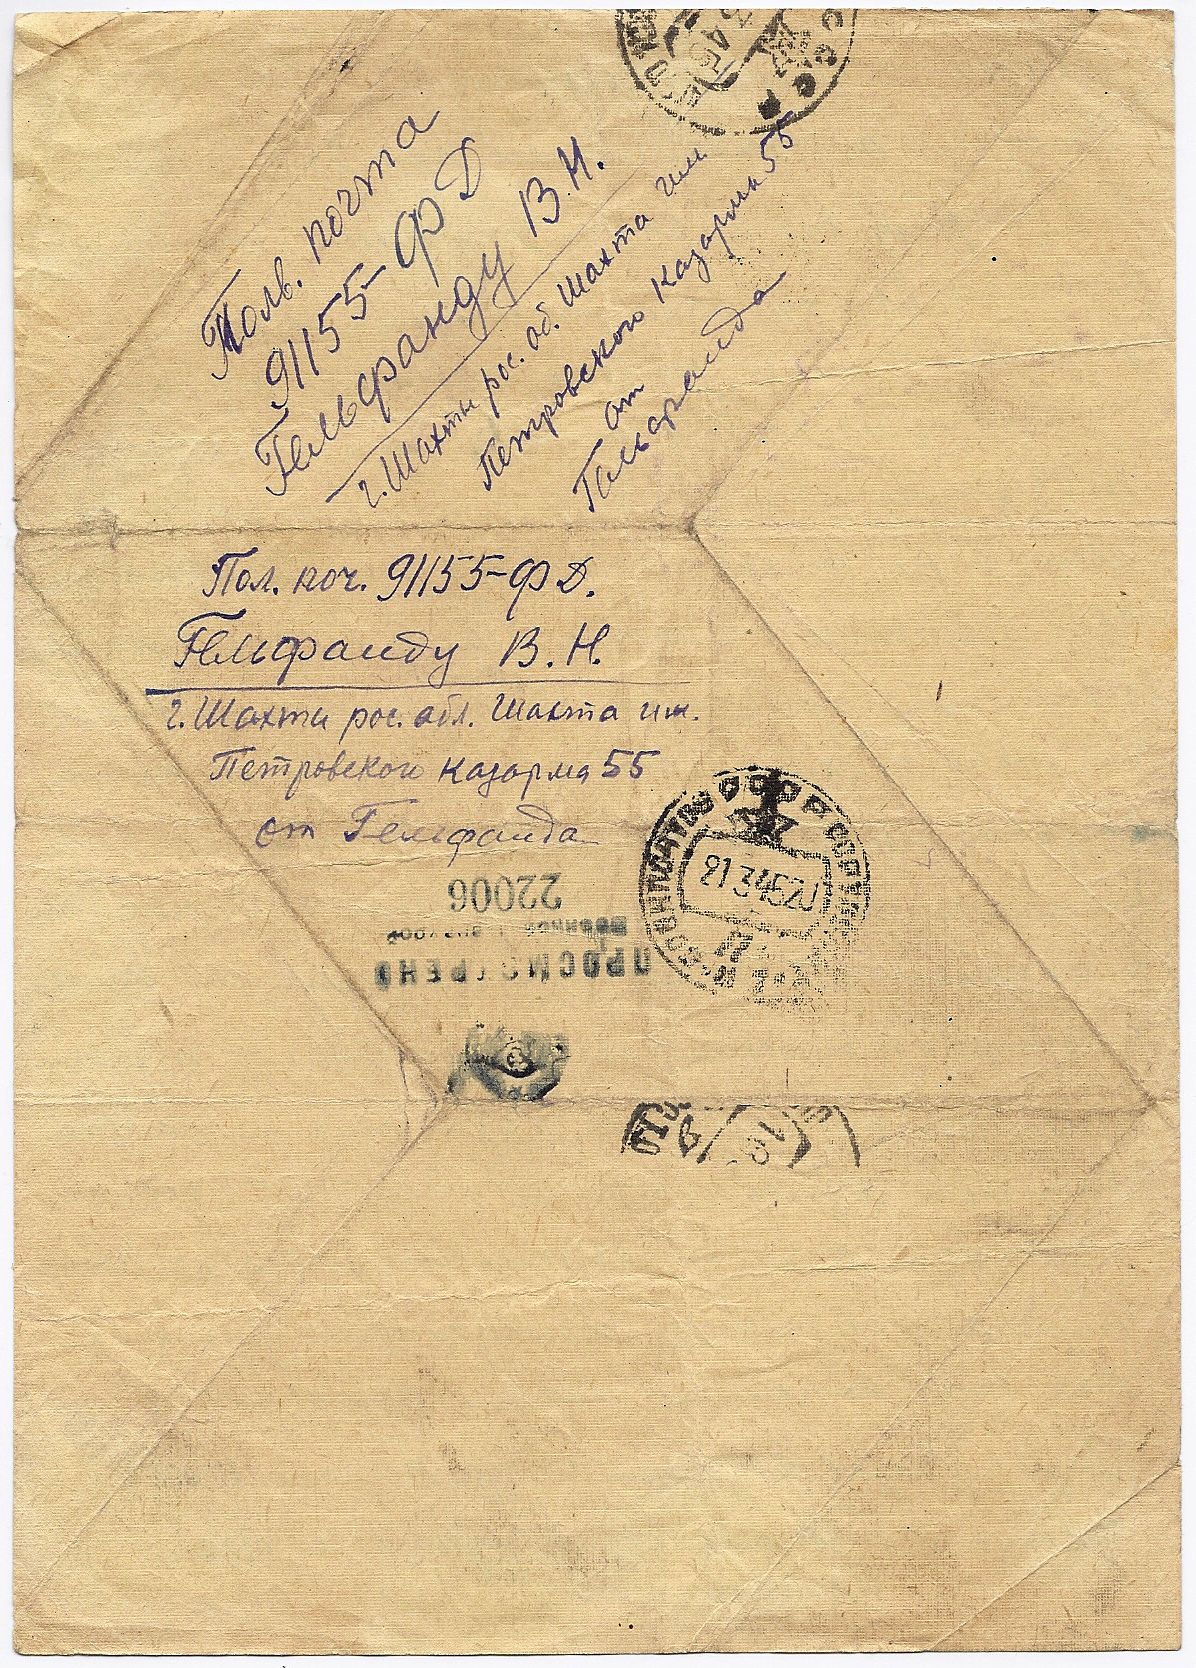 С С С Р
45
Полв. почта
91155-ФД
Гельфанду В.Н.
г. Шахты рос. об. Шахта им.
Петровского казарма 55
от
Гельфанда
Пол. поч. 91155-Ф Д.
Гельфанду В. Н.
г. Шахти рос. обл. Шахта им.
Петровского казарма 55
от Гельфанда
22006
ПРОСМОТРЕНО
21 3 45 20